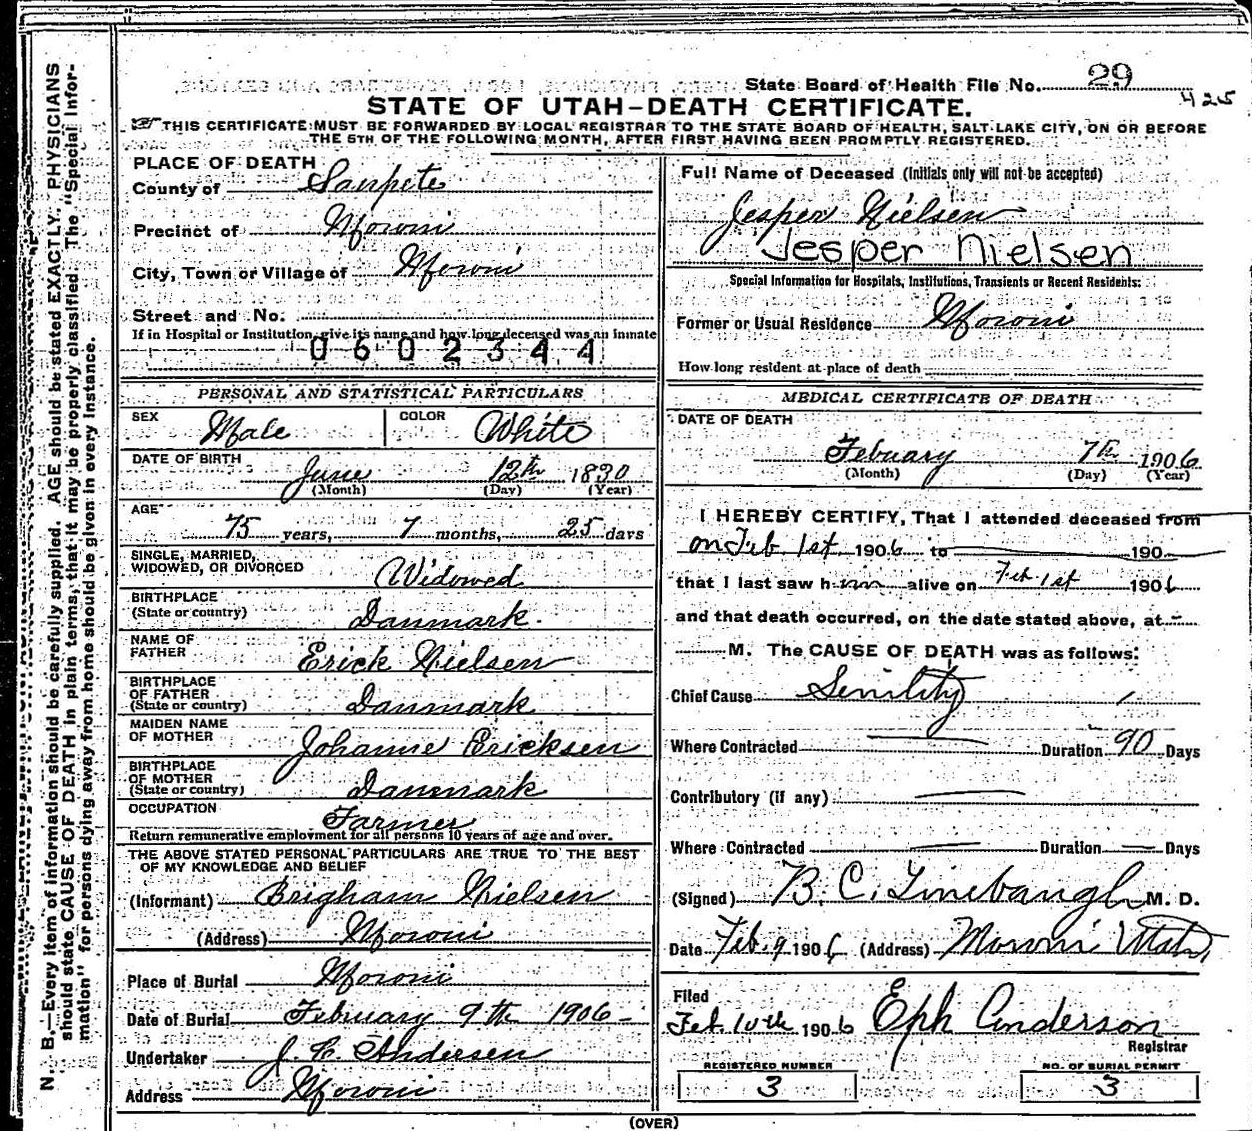 State Board of Health File No. 29
425
STATE OF UTAH—DEATH CERTIFICATE.
THIS CERTIFICATE MUST BE FORWARDED BY LOCAL REGISTRAR TO THE STATE BOARD OF HEALTH, SALT LAKE CITY, ON OR BEFORE
THE 5TH OF THE FOLLOWING MONTH, AFTER FIRST HAVING BEEN PROMPTLY REGISTERED.
N. B.—Every item of information should be carefully supplied. AGE should be stated EXACTLY. PHYSICIANS
should state CAUSE OF DEATH in plain terms, that it may be properly classified. The "Special Infor-
mation" for persons dying away from home should be given in every instance.
PLACE OF DEATH
County of Sanpete
Precinct of Moroni
City, Town or Village of Moroni
Street and No.
If in Hospital or Institution, give its name and how long deceased was an inmate
0602344
PERSONAL AND STATISTICAL PARTICULARS
SEX Male COLOR White
DATE OF BIRTH
June 12th 1830
(Month) (Day) (Year)
AGE
75 years, 7 months, 25 days
SINGLE, MARRIED,
WIDOWED, OR DIVORCED Widowed
BIRTHPLACE
(State or country) Danmark.
NAME OF
FATHER Erick Nielsen
BIRTHPLACE
OF FATHER
(State or country) Danmark
MAIDEN NAME
OF MOTHER Johanne Ericksen
BIRTHPLACE
OF MOTHER
(State or country) Danmark
OCCUPATION Farmer
Return remunerative employment for all persons 10 years of age and over.
THE ABOVE STATED PERSONAL PARTICULARS ARE TRUE TO THE BEST
OF MY KNOWLEDGE AND BELIEF
(Informant) Brigham Nielsen
(Address) Moroni
Place of Burial Moroni
Date of Burial February 9th 1906
Undertaker Andersen
Address Moroni
Full Name of Deceased (Initials only will not be accepted)
Jesper Nielsen
Jesper Nielsen
Special Information for Hospitals, Institutions, Transients or Recent Residents:
Former or Usual Residence Moroni
How long resident at place of death
MEDICAL CERTIFICATE OF DEATH
DATE OF DEATH
Febuary 7th 1906
(Month) (Day) (Year)
I HEREBY CERTIFY, That I attended deceased from
on Feb 1st 1906 to 190
that I last saw him alive on Feb 1st 1906
and that death occurred, on the date stated above, at
M. The CAUSE OF DEATH was as follows:
Chief Cause Senility
Where Contracted Duration 90 Days
Contributory (if any)
Where Contracted Duration Days
(Signed) B. C. Linebaugh M. D.
Date Feb. 9 1906 (Address) Moroni Utah
Filed
Feb. 10th 1906 Eph Anderson
Registrar
REGISTERED NUMBER
3
NO. OF BURIAL PERMIT
3
(OVER)